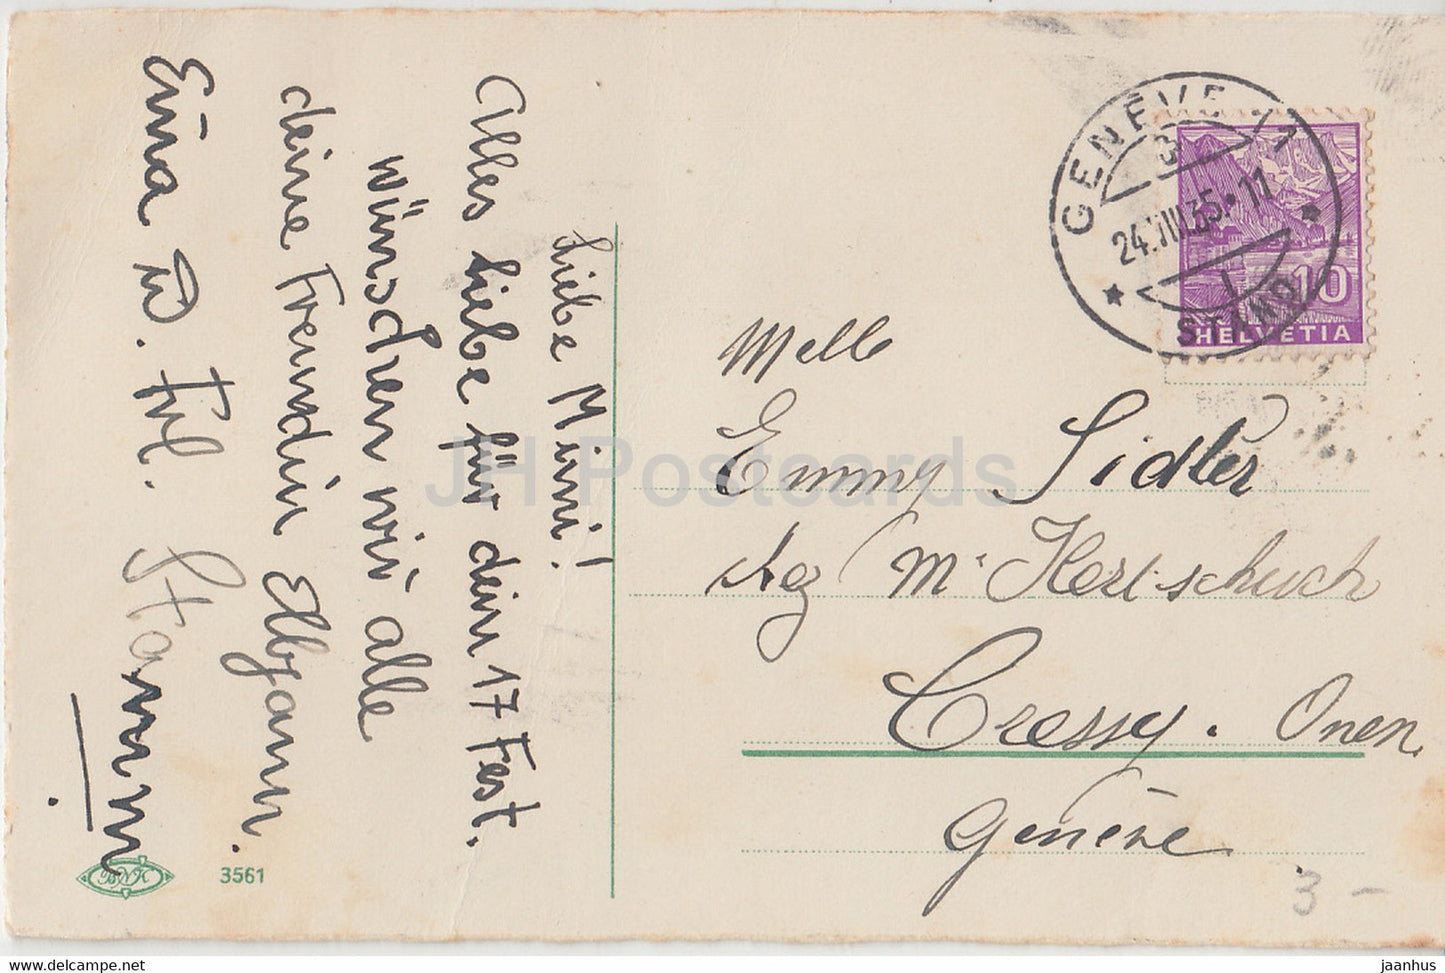 Liebe Mimi!
Alles Liebe für dein 17 Fest.
wünschen wir alle
deine Freundin Elbjann.
u. Frl. Stamm
GENÈVE 11
3
24.VIII.35.-11
STAND
10
HELVETIA
Melle
Emmy Sidler
chez Mr Kertschuch
Cressy. Onex
Genève
BNK
3561
3 -
JH Postcards
https://www.delcampe.net
jaanhus